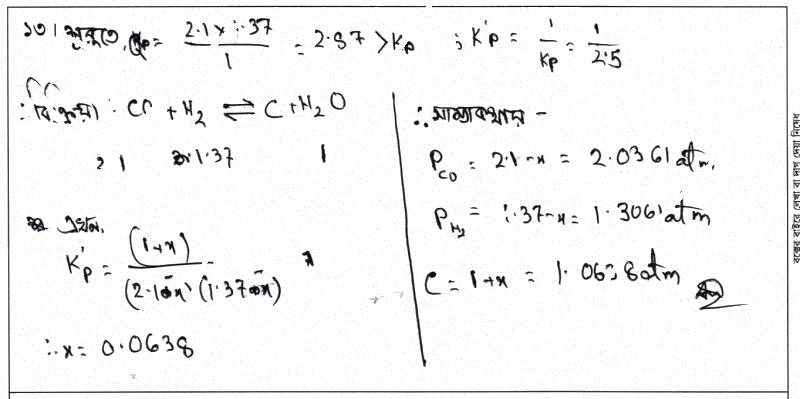 ১৩। শুরুতে, Qp = 2.1 x 1.37 / 1 = 2.87 > Kp ; K'p = 1/Kp = 1/2.5
∴ বিক্রিয়া : CO + H2 ⇌ C + H2O
2.1 1.37 1
এখন,
K'p = (1+x) / (2.1-x) (1.37-x)
∴ x = 0.0638
∴ সাম্যাবস্থায় -
P_CO = 2.1-x = 2.0361 atm,
P_H2 = 1.37-x = 1.3061 atm
C = 1+x = 1.0638 atm
বক্সের বাইরে লেখা বা দাগ দেয়া নিষেধ